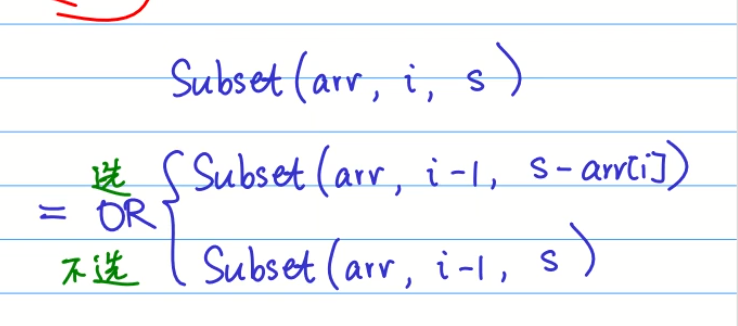 Subset(arr, i, s)
选 Subset(arr, i-1, s-arr[i])
= OR
不选 Subset(arr, i-1, s)